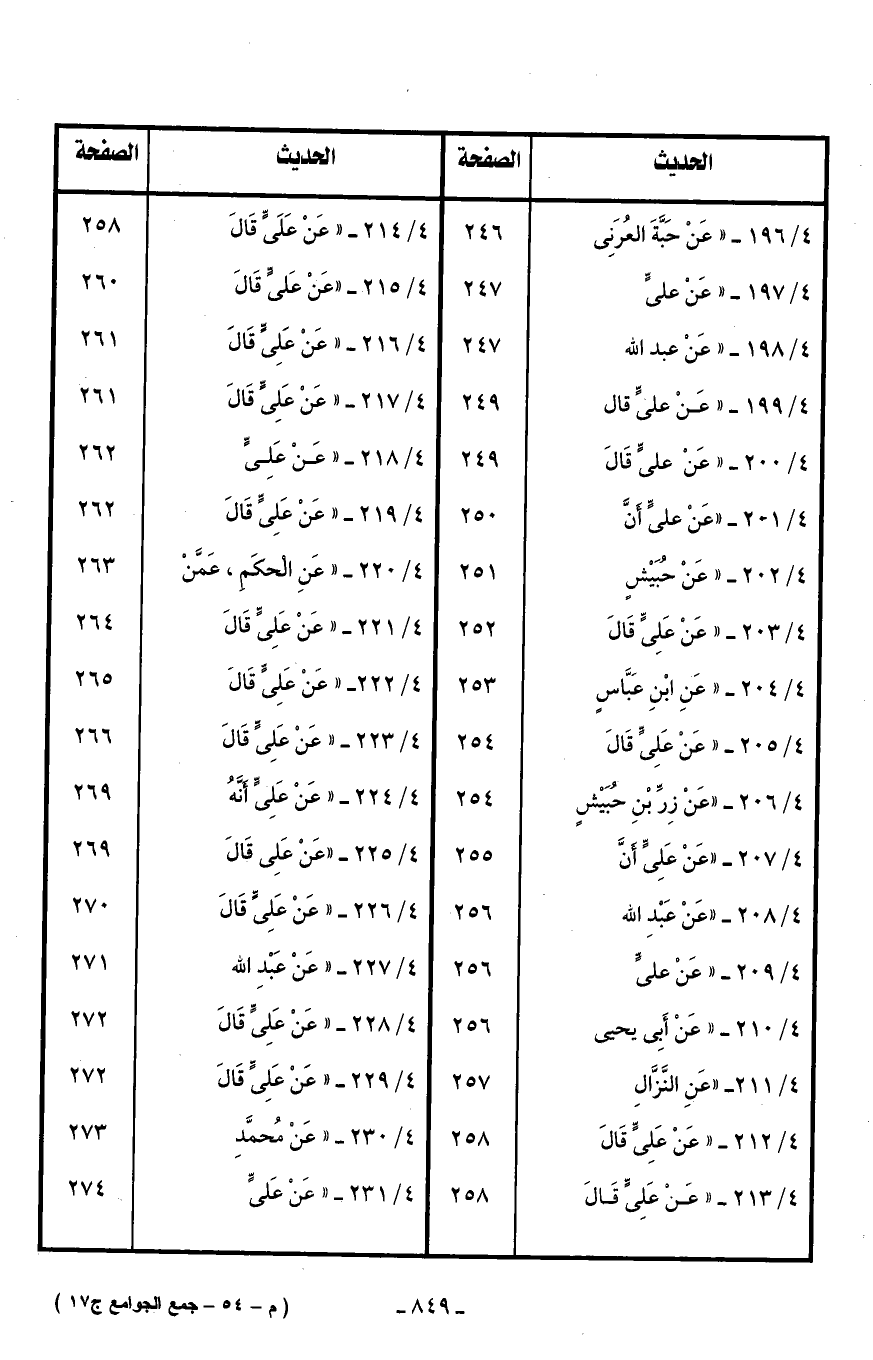 الحديث الصفحة الحديث الصفحة
٤/ ١٩٦ ـ « عَنْ حَبَّةَ العُرَنِى ٢٤٦ ٤/ ٢١٤ ـ « عَنْ عَلَىٍّ قَالَ ٢٥٨
٤/ ١٩٧ ـ « عَنْ علىٍّ ٢٤٧ ٤/ ٢١٥ ـ «عَنْ عَلِىٍّ قَالَ ٢٦٠
٤/ ١٩٨ ـ « عَنْ عبد الله ٢٤٧ ٤/ ٢١٦ ـ « عَنْ عَلِىٍّ قَالَ ٢٦١
٤/ ١٩٩ ـ « عَـنْ علىٍّ قال ٢٤٩ ٤/ ٢١٧ ـ « عَنْ عَلِىٍّ قَالَ ٢٦١
٤/ ٢٠٠ ـ « عَنْ علىٍّ قَالَ ٢٤٩ ٤/ ٢١٨ ـ « عَـنْ عَلِـىٍّ ٢٦٢
٤/ ٢٠١ ـ «عَنْ علىٍّ أَنَّ ٢٥٠ ٤/ ٢١٩ ـ « عَنْ عَلِىٍّ قَالَ ٢٦٢
٤/ ٢٠٢ ـ « عَنْ حُبَيْشٍ ٢٥١ ٤/ ٢٢٠ ـ « عَنِ الْحكَمِ ، عَمَّنْ ٢٦٣
٤/ ٢٠٣ ـ « عَنْ عَلِىٍّ قَالَ ٢٥٢ ٤/ ٢٢١ ـ « عَنْ عَلِىٍّ قَالَ ٢٦٤
٤/ ٢٠٤ ـ « عَنِ ابْنِ عَبَّاسٍ ٢٥٣ ٤/ ٢٢٢ـ « عَنْ عَلِىٍّ قَالَ ٢٦٥
٤/ ٢٠٥ ـ « عَنْ عَلِىٍّ قَالَ ٢٥٤ ٤/ ٢٢٣ ـ « عَنْ عَلِىٍّ قَالَ ٢٦٦
٤/ ٢٠٦ ـ «عَنْ زِرِّ بْنِ حُبَيْشٍ ٢٥٤ ٤/ ٢٢٤ ـ « عَنْ عَلِىٍّ أَنَّهُ ٢٦٩
٤/ ٢٠٧ ـ «عَنْ عَلِىٍّ أَنَّ ٢٥٥ ٤/ ٢٢٥ ـ «عَنْ عَلِى قَالَ ٢٦٩
٤/ ٢٠٨ ـ «عَنْ عَبْدِ الله ٢٥٦ ٤/ ٢٢٦ ـ « عَنْ عَلِىٍّ قَالَ ٢٧٠
٤/ ٢٠٩ ـ « عَنْ علىٍّ ٢٥٦ ٤/ ٢٢٧ ـ « عَنْ عَبْدِ الله ٢٧١
٤/ ٢١٠ ـ « عَنْ أَبِى يحيى ٢٥٦ ٤/ ٢٢٨ ـ « عَنْ عَلِىٍّ قَالَ ٢٧٢
٤/ ٢١١ـ «عَنِ النَّزَّالِ ٢٥٧ ٤/ ٢٢٩ ـ « عَنْ عَلِىٍّ قَالَ ٢٧٢
٤/ ٢١٢ ـ « عَنْ عَلِىٍّ قَالَ ٢٥٨ ٤/ ٢٣٠ ـ « عَنْ مُحمَّدٍ ٢٧٣
٤/ ٢١٣ ـ « عَـنْ عَلِىٍّ قَـالَ ٢٥٨ ٤/ ٢٣١ ـ « عَنْ عَلىٍّ ٢٧٤
ـ ٨٤٩ ـ ( م - ٥٤ - جمع الجوامع ج١٧ )